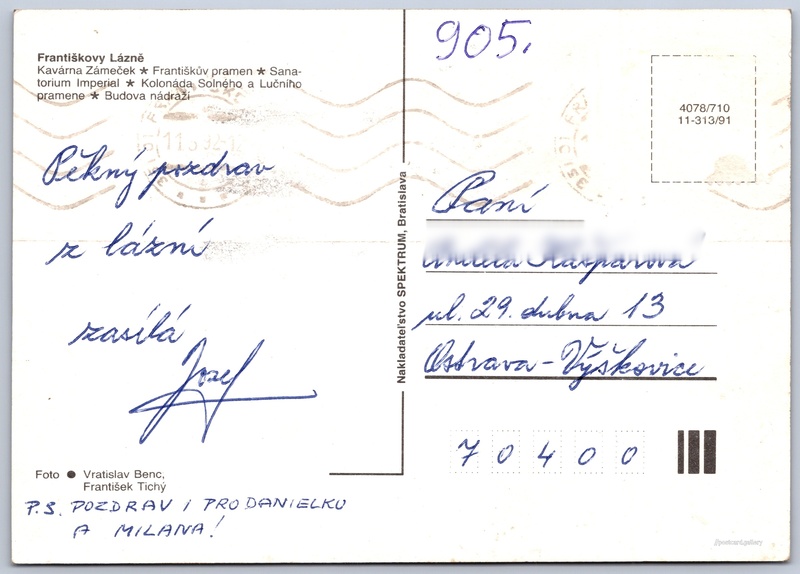 Františkovy Lázně
Kavárna Zámeček ★ Františkův pramen ★ Sana-
torium Imperial ★ Kolonáda Solného a Lučního
pramene ★ Budova nádraží
905.
4078/710
11-313/91
Pěkný pozdrav
z lázní
zasílá
Jozef
Nakladateľstvo SPEKTRUM, Bratislava
Paní
ul. 29. dubna 13
Ostrava-Výškovice
70400
Foto ● Vratislav Benc,
František Tichý
P.S. POZDRAV I PRO DANIELKU
A MILANA!